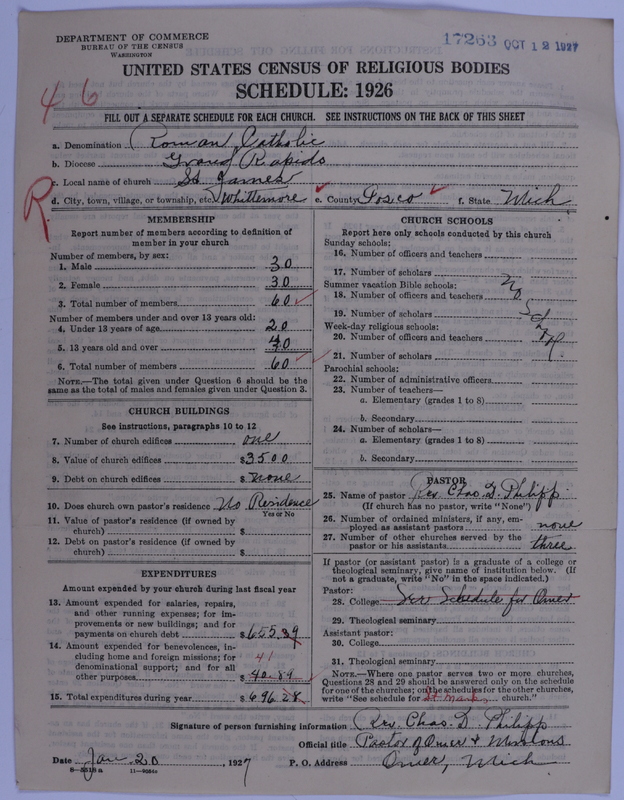 DEPARTMENT OF COMMERCE
BUREAU OF THE CENSUS
WASHINGTON
17263 OCT 12 1927
UNITED STATES CENSUS OF RELIGIOUS BODIES
SCHEDULE: 1926
46
FILL OUT A SEPARATE SCHEDULE FOR EACH CHURCH. SEE INSTRUCTIONS ON THE BACK OF THIS SHEET
a. Denomination Roman Catholic
b. Diocese Grand Rapids
c. Local name of church St James
R
d. City, town, village, or township, etc. Whittemore e. County Iosco f. State Mich
MEMBERSHIP
Report number of members according to definition of
member in your church
Number of members, by sex:
1. Male 30
2. Female 30
3. Total number of members 60
Number of members under and over 13 years old:
4. Under 13 years of age 20
5. 13 years old and over 40
6. Total number of members 60
NOTE.—The total given under Question 6 should be
same as the total of males and females given under Question 3.
CHURCH BUILDINGS
See instructions, paragraphs 10 to 12
7. Number of church edifices one
8. Value of church edifices $3500
9. Debt on church edifices $none
10. Does church own pastor's residence No Residence
Yes or No
11. Value of pastor's residence (if owned by
church) $
12. Debt on pastor's residence (if owned by
church) $
EXPENDITURES
Amount expended by your church during last fiscal year
13. Amount expended for salaries, repairs,
and other running expenses; for im-
provements or new buildings; and for
payments on church debt $655.39
14. Amount expended for benevolences, in-
cluding home and foreign missions; for
denominational support; and for all
other purposes $40.89
41
15. Total expenditures during year $696.28
CHURCH SCHOOLS
Report here only schools conducted by this church
Sunday schools:
16. Number of officers and teachers
17. Number of scholars
Summer vacation Bible schools:
18. Number of officers and teachers No
19. Number of scholars
Week-day religious schools:
20. Number of officers and teachers
21. Number of scholars
Parochial schools:
22. Number of administrative officers
23. Number of teachers—
a. Elementary (grades 1 to 8)
b. Secondary
24. Number of scholars—
a. Elementary (grades 1 to 8)
b. Secondary
PASTOR
25. Name of pastor Rev. Chas. D. Philipp
(If church has no pastor, write "None")
26. Number of ordained ministers, if any, em-
ployed as assistant pastors none
27. Number of other churches served by the
pastor or his assistants three
If pastor (or assistant pastor) is a graduate of a college or
theological seminary, give name of institution below. (If
not a graduate, write "No" in the space indicated.)
Pastor:
28. College See Schedule for Omer
29. Theological seminary
Assistant pastor:
30. College
31. Theological seminary
NOTE.—Where one pastor serves two or more churches,
Questions 28 and 29 should be answered only on the schedule
for one of the churches; on the schedules for the other churches,
write "See schedule for St Marks church."
Signature of person furnishing information Rev. Chas. D. Philipp
Official title Pastor of Omer & Missions
Date Jan. 20, 1927 P. O. Address Omer, Mich